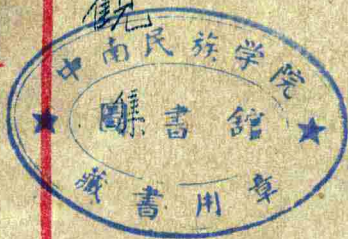 中南民族学院
圖書館
藏書用章